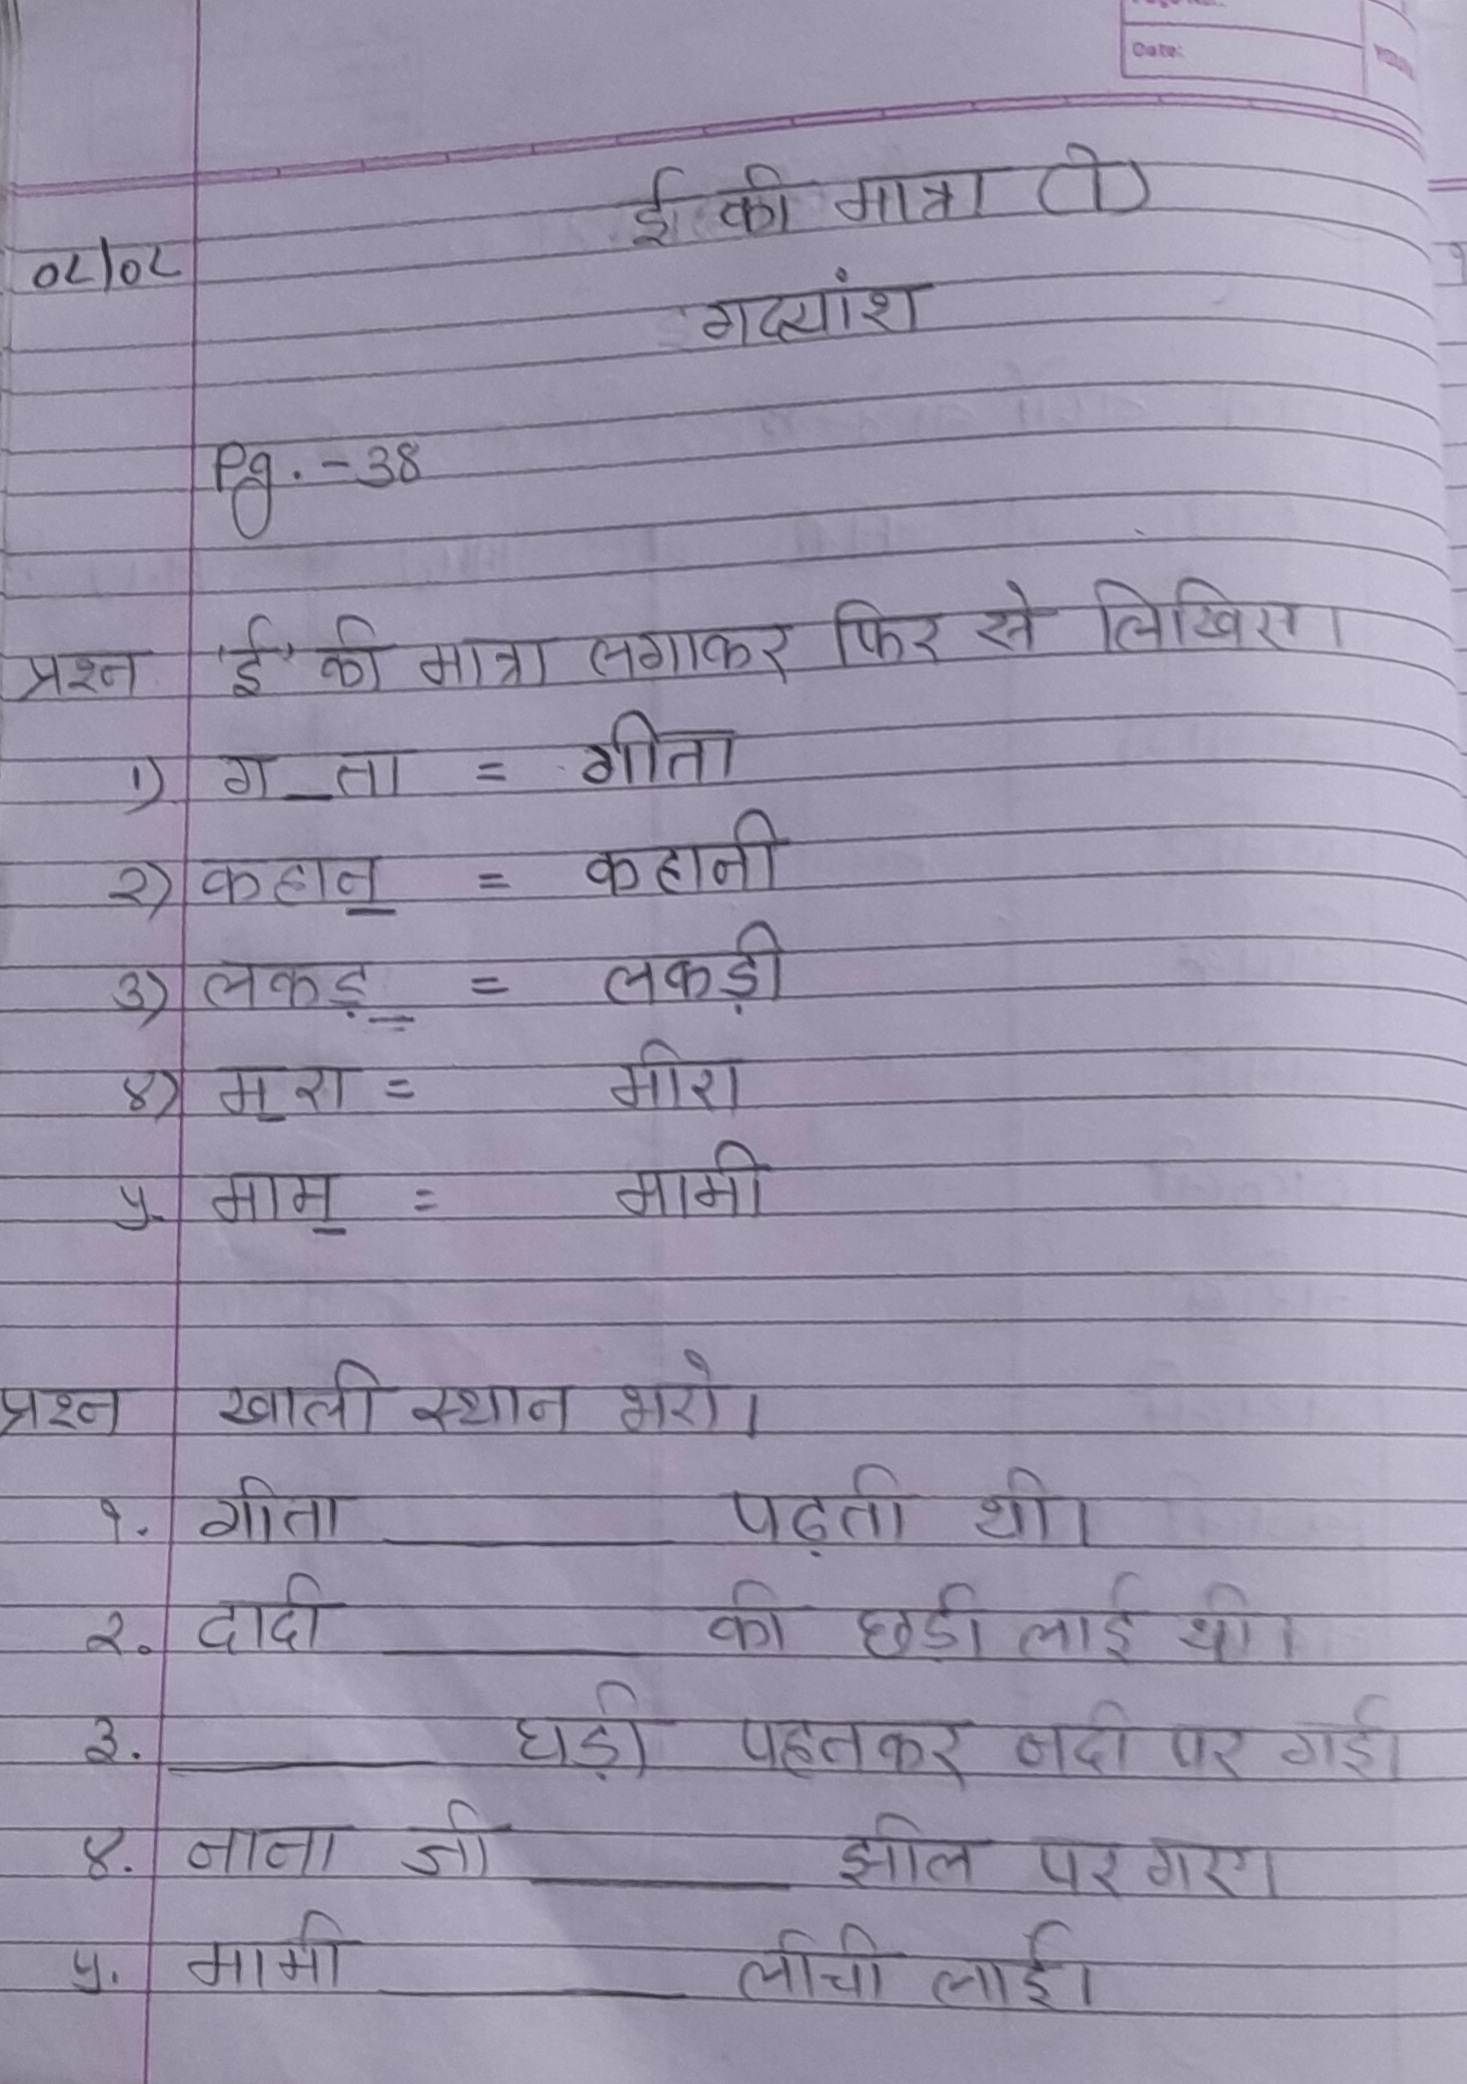 Date:
ई की मात्रा ( ी )
०८/०८
गद्यांश
Pg. - 38
प्रश्न 'ई' की मात्रा लगाकर फिर से लिखिए।
१) ग_ता = गीता
२) कहान_ = कहानी
३) लकड़_ = लकड़ी
४) म_रा = मीरा
५. माम_ = मामी
प्रश्न खाली स्थान भरो।
१. गीता ______ पढ़ती थी।
२. दादी ______ की छड़ी लाई थी।
३. ______ घड़ी पहनकर नदी पर गई।
४. नाना जी ______ झील पर गए।
५. मामी ______ लीची लाई।